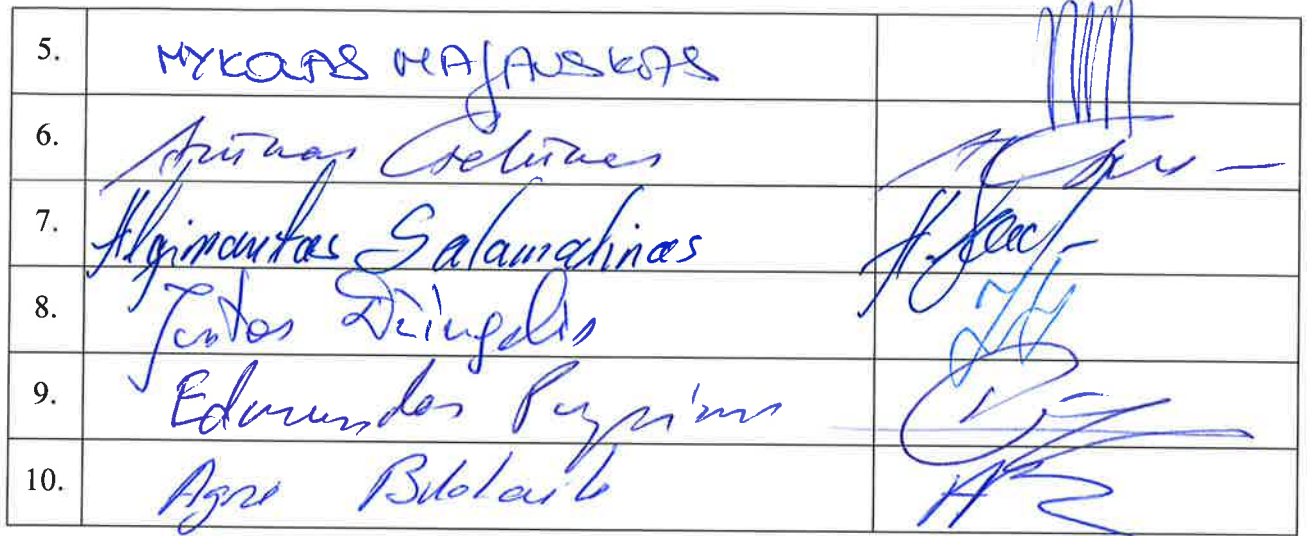 5. MYKOLAS MAJAUSKAS
6. Arūnas Gelūnas
7. Algimantas Salamakinas A. Sal
8. Justas Džiugelis
9. Edmundas Pupinis
10. Agnė Bilotaitė